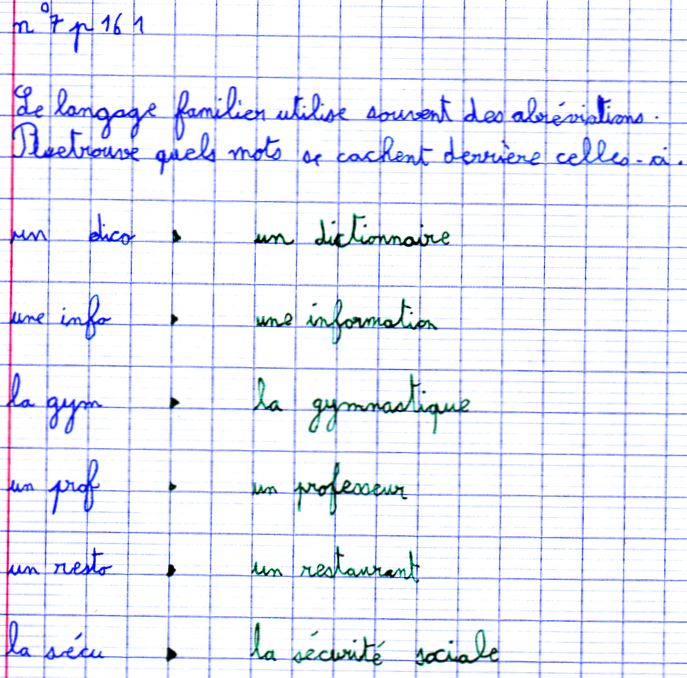 n°7 p 161
Le langage familier utilise souvent des abréviations.
Retrouve quels mots se cachent derrière celles-ci.
un dico ▸ un dictionnaire
une info ▸ une information
la gym ▸ la gymnastique
un prof ▸ un professeur
un resto ▸ un restaurant
la sécu ▸ la sécurité sociale